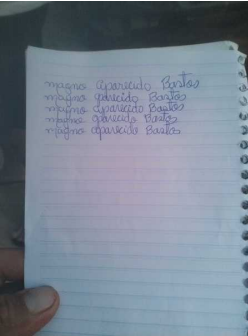 magno aparecido Bastos
magno aparecido Bastos
magno aparecido Bastos
magno aparecido Bastos
magno aparecido Bastos